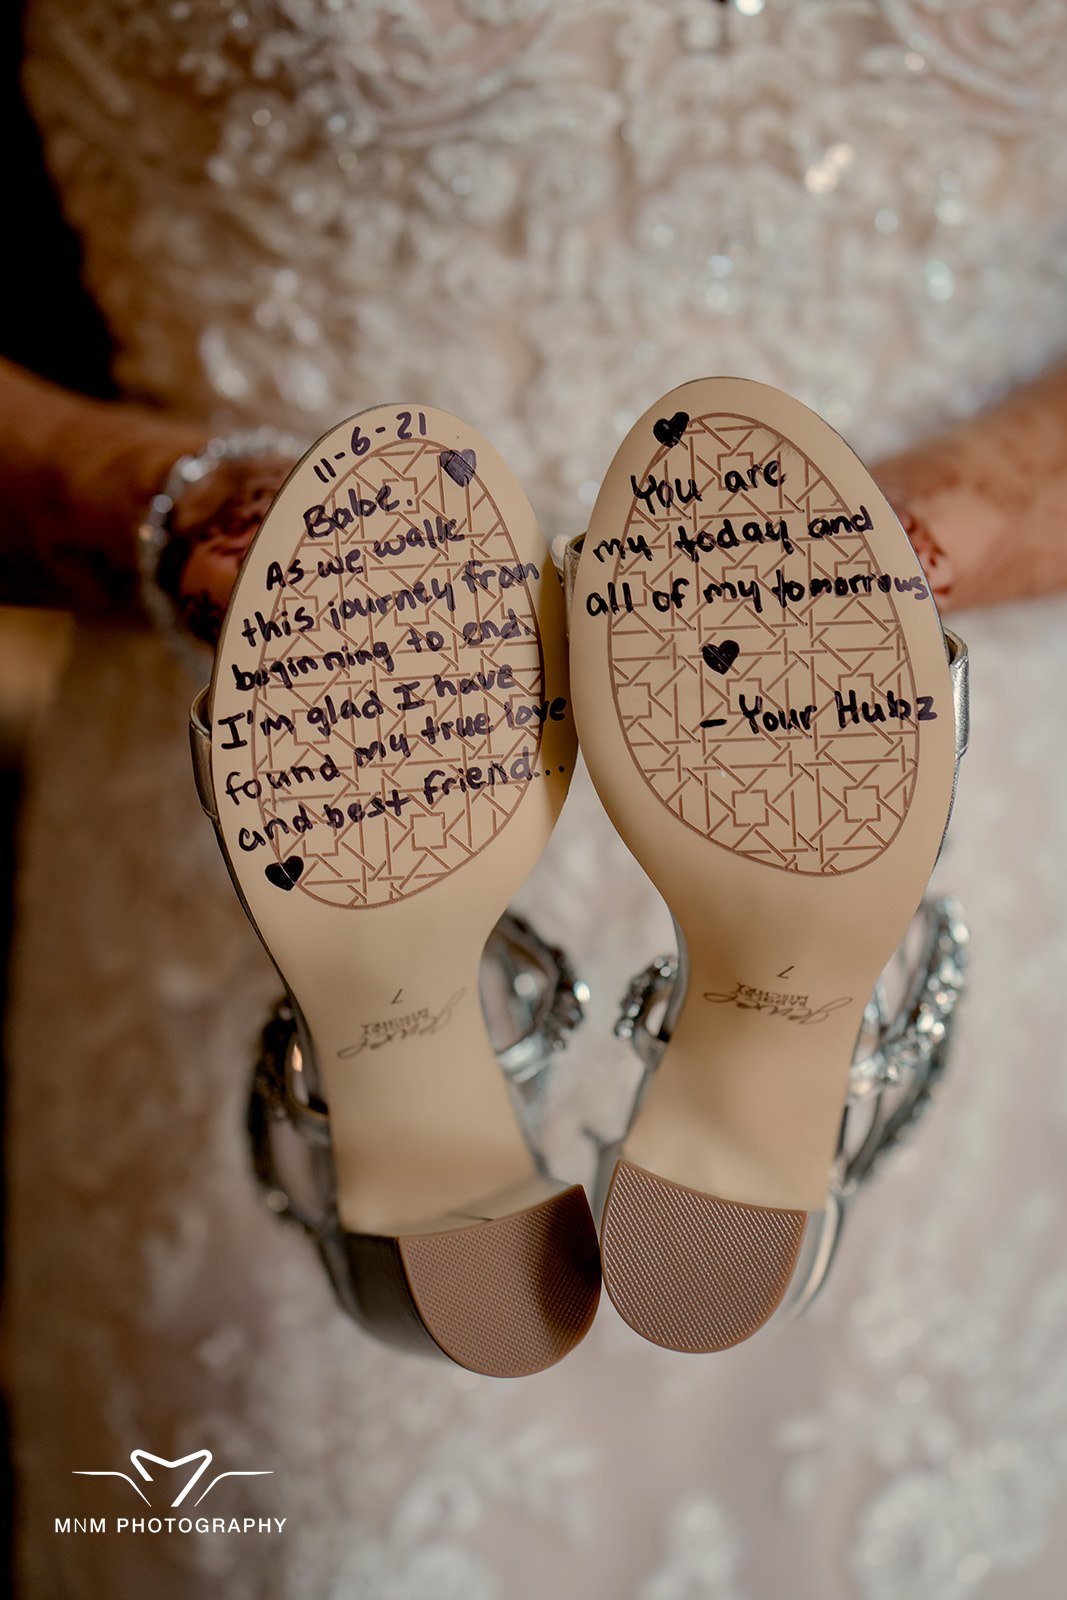 11-6-21
Babe.
As we walk
this journey from
beginning to end.
I'm glad I have
found my true love
and best friend...
You are
my today and
all of my tomorrows
- Your Hubz
7
7
MNM PHOTOGRAPHY